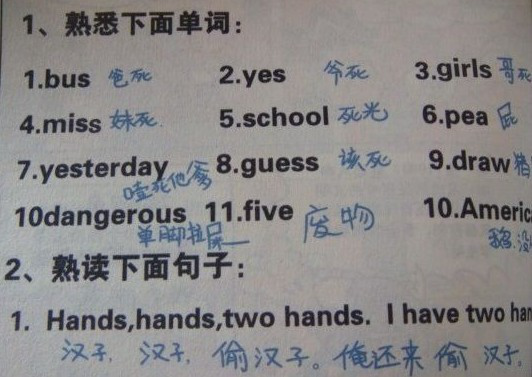 1、熟悉下面单词：
1.bus 爸死 2.yes 爷死 3.girls 哥死
4.miss 妹死 5.school 死光 6.pea 屁
7.yesterday 噎死他爹 8.guess 该死 9.draw 猪
10dangerous 单脚拉屎 11.five 废物 10.Americ
2、熟读下面句子：
1. Hands,hands,two hands. I have two han
汉子，汉子，偷汉子。俺还来偷汉子，